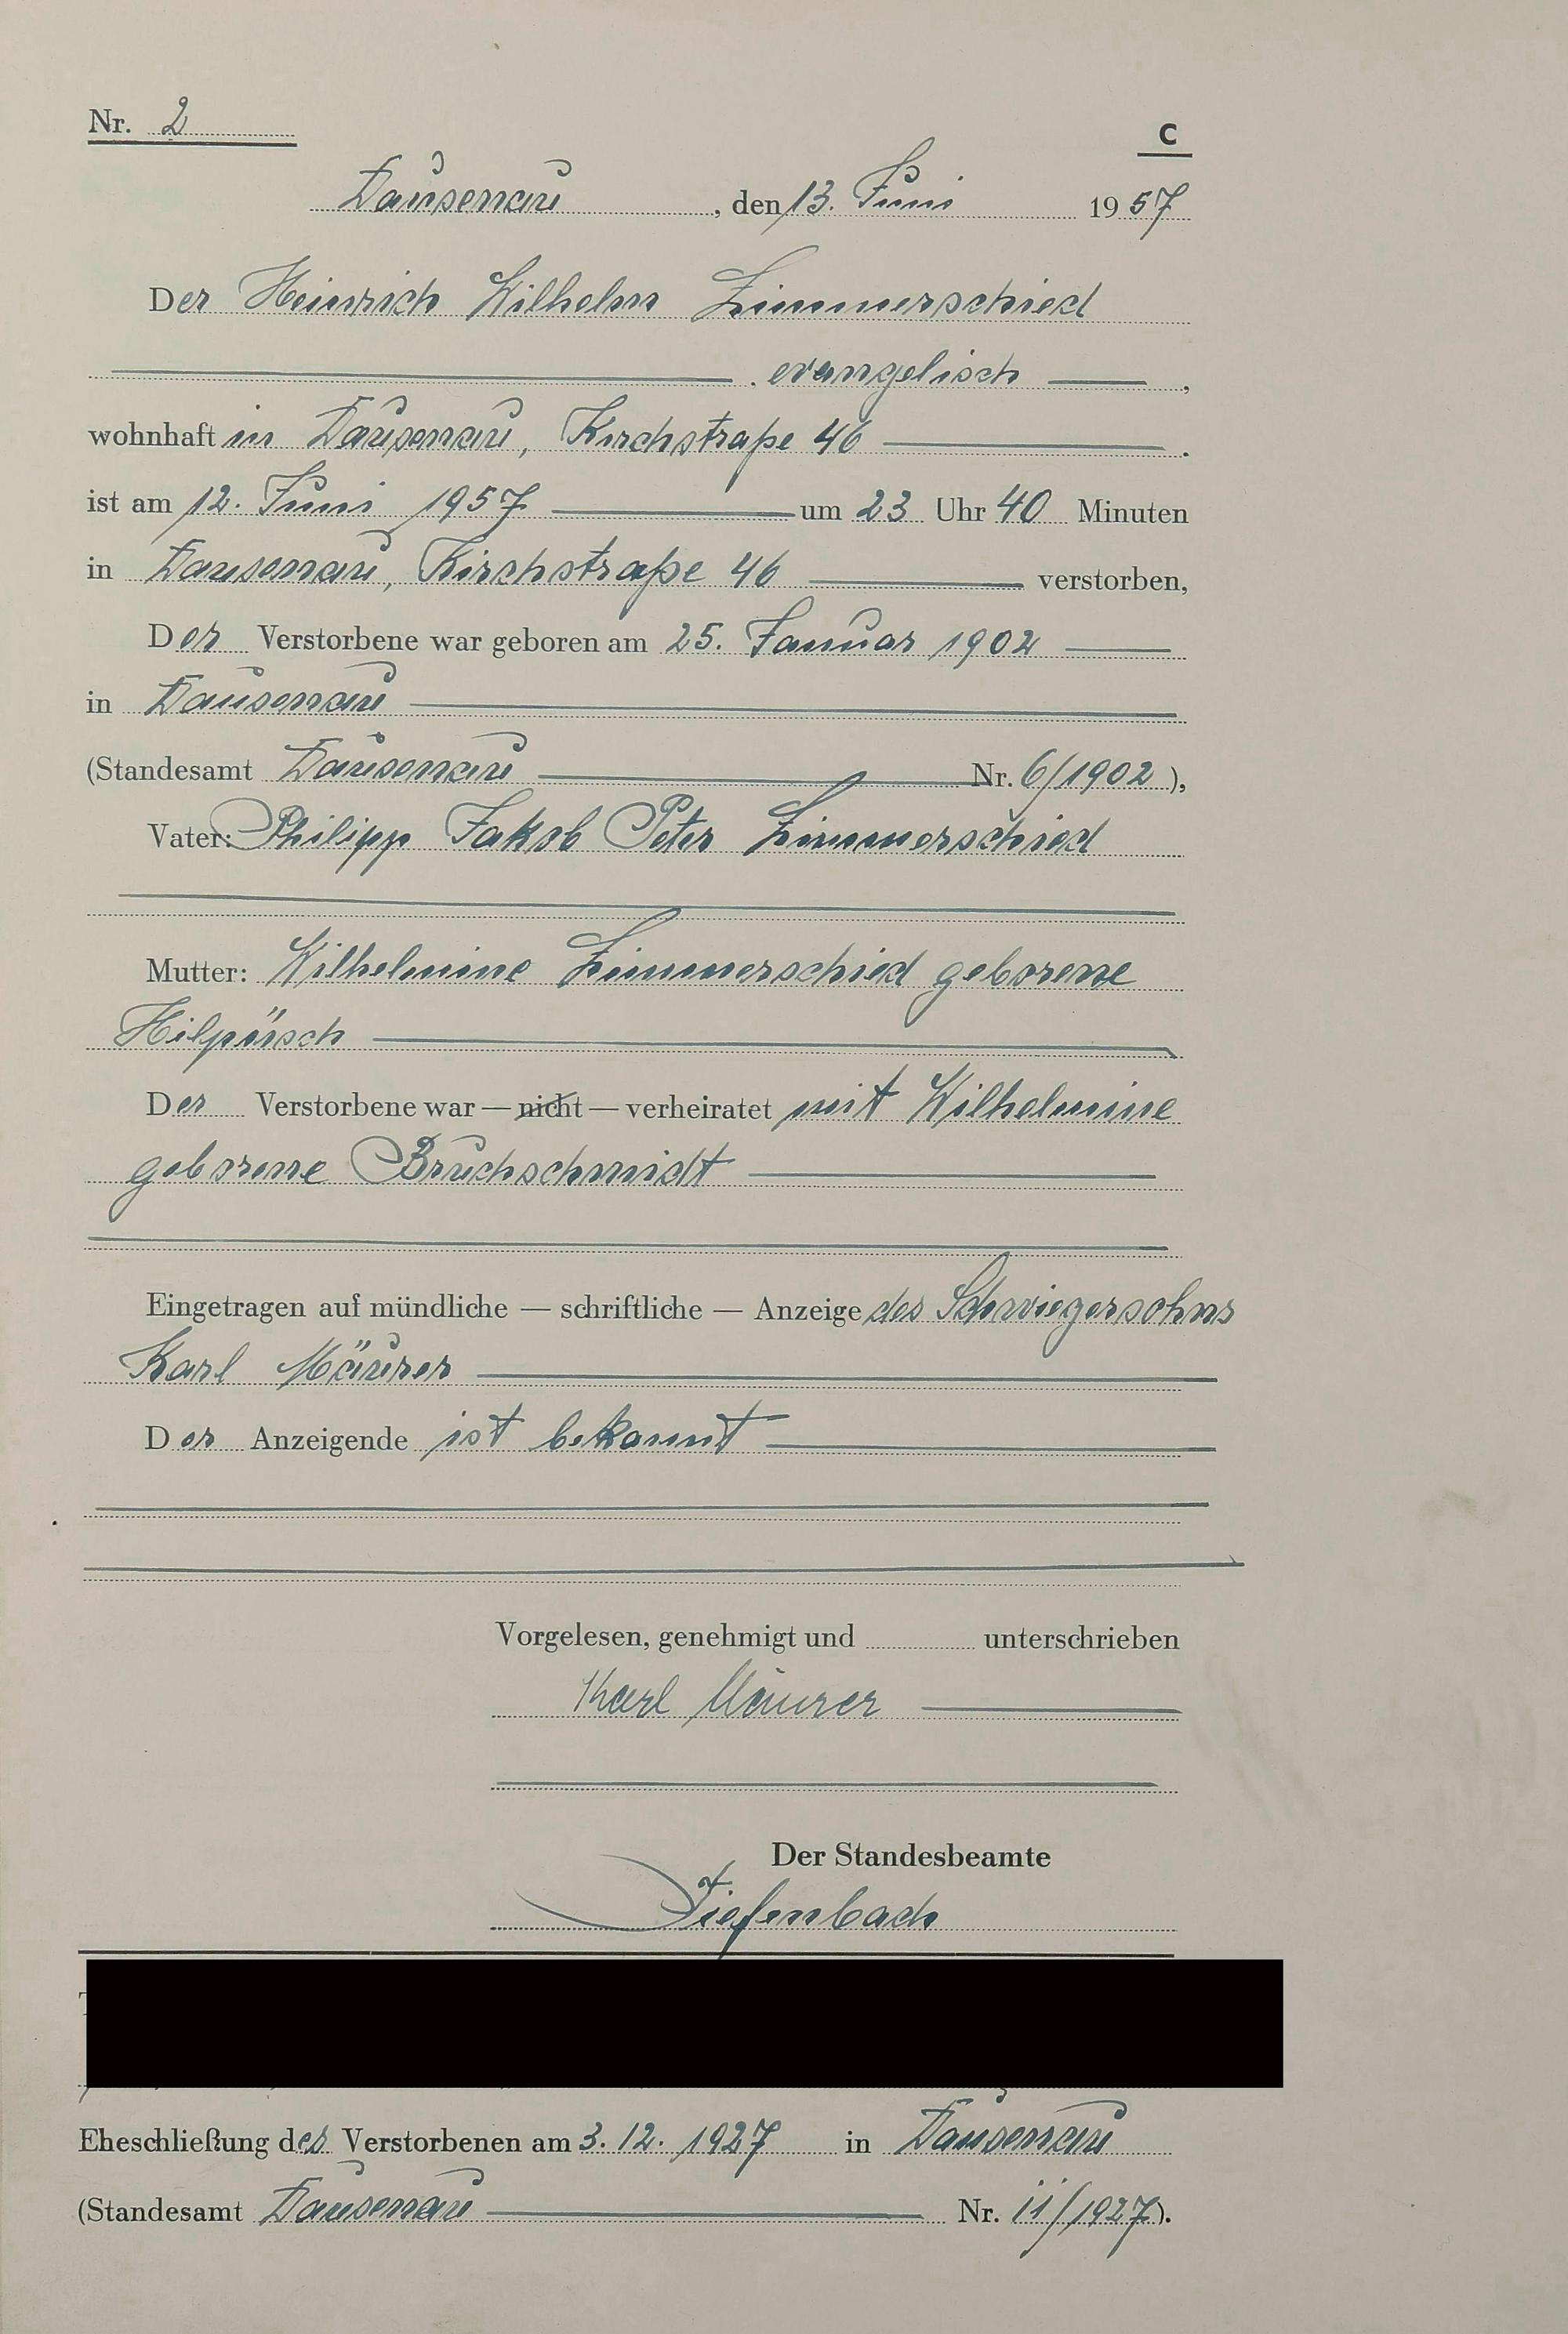 Nr. 2
C
Dausenau, den 13. Juni 1957
Der Heinrich Wilhelm Zimmerschied
evangelisch,
wohnhaft in Dausenau, Kirchstraße 46.
ist am 12. Juni 1957 um 23 Uhr 40 Minuten
in Dausenau, Kirchstraße 46 verstorben,
Der Verstorbene war geboren am 25. Januar 1902
in Dausenau
(Standesamt Dausenau Nr. 6/1902),
Vater: Philipp Jakob Peter Zimmerschied
Mutter: Wilhelmine Zimmerschied geborene
Hilpüsch
Der Verstorbene war — nicht — verheiratet mit Wilhelmine
geborene Bruchschmidt
Eingetragen auf mündliche — schriftliche — Anzeige des Schwiegersohns
Karl Mäurer
Der Anzeigende ist bekannt
Vorgelesen, genehmigt und unterschrieben
Karl Mäurer
Der Standesbeamte
Tiefenbach
Eheschließung des Verstorbenen am 3. 12. 1927 in Dausenau
(Standesamt Dausenau Nr. 11/1927).